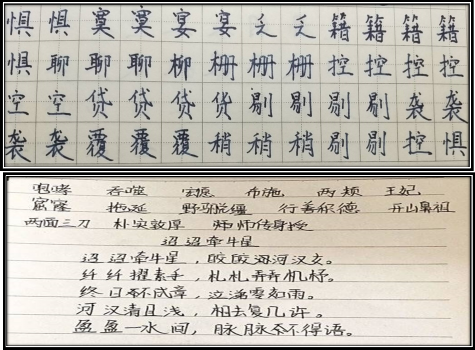 惧 惧 寞 寞 宴 宴 乏 乏 籍 籍 籍 籍
惧 聊 聊 聊 柳 栅 栅 栅 控 控 控 控
空 空 贷 贷 贷 货 剔 剔 剔 剔 袭 袭
袭 袭 覆 覆 覆 稍 稍 稍 剔 剔 控 惧
咆哮 吞噬 布施 两颊 王妃
窟窿 拖延 野驴脱缰 行善积德 开山鼻祖
两面三刀 朴实敦厚 师师传身授
迢迢牵牛星
迢迢牵牛星，皎皎海河汉女。
纤纤擢素手，札札弄弄机杼。
终日不成章，泣涕零如雨。
河汉清且浅，相去复几许。
盈盈一水间，脉脉不得语。